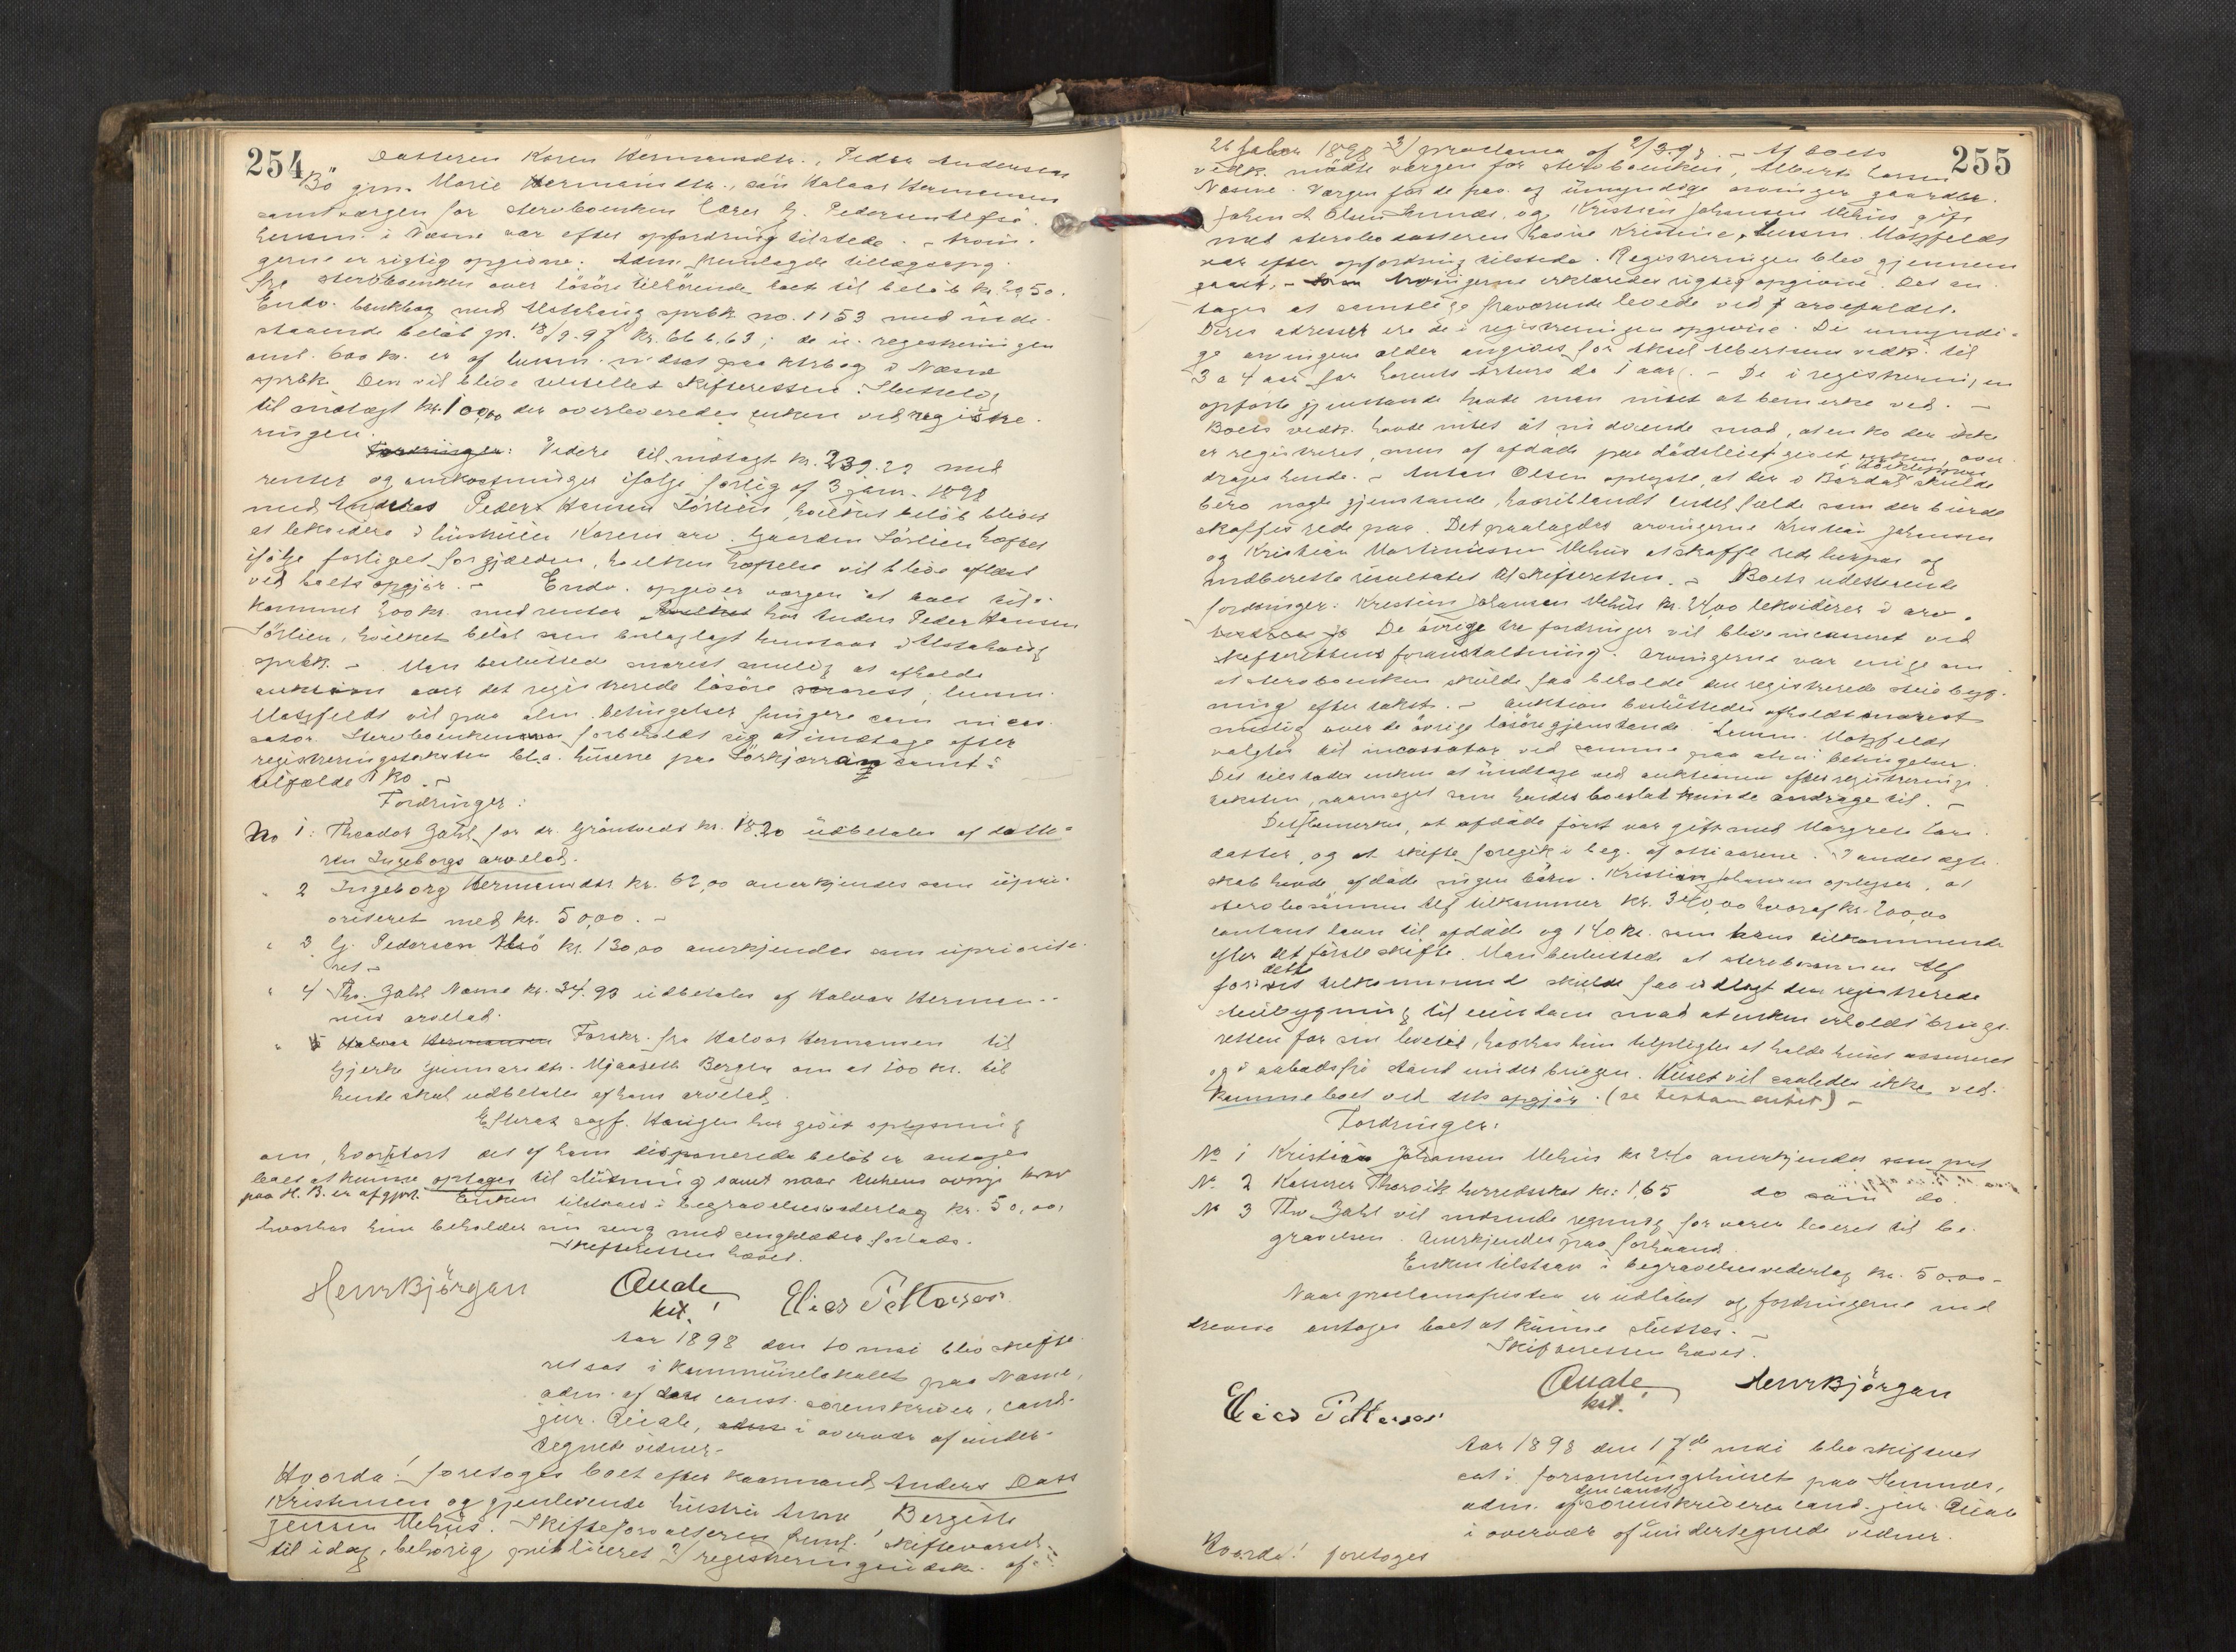 254
datteren Karen Hermansdtr., Peder Andersen
Bö gm. Marie Hermansdtr., sön Halvar Hermansen
samt værgen for sterboenken Lars G. Pedersen Husö.
Lensm. i Næsne var efter opfordring tilstede. - Arvin-
gerne er rigtig opgivne. Adm. fremlagde tillægsopg.
fra sterboenken over lösöre tilhörende boet til belöb kr. 29,50.
Endv. bankbog med Alstahaug sprbk no. 1153 med inde-
staaende belöb pr. 18/9.97 kr. 666.63; de i registreringen
omt. 600 kr. er af lensm. indsat paa ktrbog i Næsne
sprbk. Den vil blive tilstillet skifteretten. Sluttelig
til indtægt kr. 100,00 der overleveredes enken ved registre-
ringen.
Fordringer: Videre til indtægt kr. 239.22 med
renter og omkostninger ifölge forlig af 3 janr. 1898
med Anders Peder Hansen Sörlien, hvilket belöb bliver
at likvidere i hustruen Karens arv. Gaarden Sörlien hæfter
ifölge forliget for gjælden, hvilken hæftelse vil blive aflæst
ved boets opgjör. - Endv. opgiver værgen at boet til-
kommer 200 kr. med renter hvilket hos Anders Peder Hansen
Sörlien, hvilket belöb som beslaglagt henstaar i Alstahaug
sprbk. - Man besluttede snarest mulig at afholde
auktion over det registrerede lösöre snarest, lensm.
Motzfeldt vil paa alm. betingelser fungere som incas-
sator. Sterboenken forbeholdt sig at indtage efter
registreringstaksten bl.a. husene paa Sörkjærran samt i
tilfælde 1 ko. -
Fordringer:
No 1: Theodor Zahl for dr. Gröntvedt kr. 18.20 udbetales af datte-
ren Ingeborgs arvelod.
" 2 Ingeborg Hermansdtr. kr. 62,00 anerkjendes som upri-
oriteret med kr. 50,00. -
" 3 G. Pedersen Husö kr. 130,00 anerkjendes som uprioite-
ret. -
" 4 Th. Zahl Næsne kr. 34.93 udbetales af Halvar Herman-
sens arvelod.
" 5 Halvar Hermansen Forskr. fra Halvor Hermansen til
Gjerke Gunnarsdtr. Mjaaseth Bergen om at 100 kr. til
hende skal udbetales af hans arvelod.
Efterat sagf. Haugen har givet oplysning
om, hvorstort det af ham disponerede belöb er antages
boet at kunne optages til slutning samt naar enkens övrige krav
paa H. B. er afgjort. Enken tilstaaes i begravelsesvederlag kr. 50,00,
hvorhos hun beholder sin seng med sengklæder forlods.
Skifteretten hævet.
Henr Björgan Aude Elias Pettersen
kst.
Aar 1898 den 10 mai blev skifte-
ret sat i kommunelokalet paa Næsne,
adm. af den const. sorenskriver, cand.
jur. Aude, adm i overvær af under-
tegnede vidner.
Hvorda! foretoges boet efter kaarmand Anders Dass
Kristensen og gjenlevende hustru Anne Bergitte
Jensen Mehus. Skifteforvalteren freml. 1) skiftevarsel
til idag, behörig publiceret 2) registreringsudskr. af
255
26 febr. 1898 3) proclama af 2/3.98. - Af boets
vedk. mödte værgen for sterboenken, Albert Larsen
Næsne. Værgen for de frav. og umyndige arvinger gaardbr.
Johan A. Olsen Lunde, og Kristian Johansen Mehus gift
med sterbodatteren Hanne Kristine, Lensm. Motzfeldt
var efter opfordring tilstede. Registreringen blev gjennem-
gaaet. - Arvingerne erklæredes rigtig opgivne. Det an-
tages at samtlige fraværende levede ved arvefaldet.
Deres adresser ere de i registreringen opgivne. De umyndi-
ge arvingers alder angives for Aksel Albertsens vedk. til
3 a 4 aar for Lorents Arturs do 1 aar. - De i registreringen
opförte gjenstande havde man intet at bemerke ved. -
Boets vedk. havde intet at indvende mod, at en ko der ikke
er registreret, men af afdöde paa dödsleiet givet enken, over-
drages hende. - Anton Olsen oplyste, at der i Bardal skulde
bero nogle gjenstande, hvoriblandt endel fælde som der burde
skaffes rede paa. Det paalagdes arvingerne Kristian Johansen
og Kristian Martinussen Mehus at skaffe rede herpaa og
indberette resultatet til skifteretten. - Boets udestaaende
fordringer: Kristian Johansen Mehus kr. 24,00 likviderer i arv.
De övrige tre fordringer vil blive incasseret ved
skifterettens foranstaltning. Arvingerne var enige om
at sterboenken skulde faa beholde den registrerede steibyg-
ning efter takst. - Auktion besluttedes afholdt snarest
mulig over de övrige lösöregjenstande. Lensm. Motzfeldt
valgtes til incassator ved samme paa alm. betingelser.
Det tilstodes enken at indtage ved auktionen efter registrerings-
taksten, saameget som hendes boeslod kunde andrage til. -
Det bemerkes, at afdöde först var gift med Margrete Lars-
datter, og at skifte foregik i beg. af ottiaarene. I andet ægte-
skab havde afdöde ingen börn. Kristian Johansen oplyser, at
sterbosönnen Alf tilkommer kr. 340,00 hvoraf kr. 200,00
contant laan til afdöde og 140 kr. som hans tilkommende
efter det förste skifte. Man besluttede at sterbosönnen Alf
for dette tilkommende skulde faa udlagt den registrerede
steibygning til eiendom mod at enken erholdt brugs-
retten for sin levetid, hvorhos hun tilpligtes at holde huset assureret
og i aabodsfri stand under brugen. Huset vil saaledes ikke ved-
komme boet ved dets opgjör. (se testamentet) -
Fordringer:
No 1 Kristian Johansen Mehus kr 240 anerkjendes som prt
No 2 Kasserer Thorvik herredsskat kr: 1,65 do som do.
No 3 Thv. Zahl vil indsende regning for varer leveret til be-
gravelsen. Anerkjendes paa forhaand.
Enken tilstaaes i begravelsesvederlag kr. 50,00 -
Naar proclamafristen er udlöbet og fordringerne ind-
drevne antages boet at kunne sluttes. -
Skifteretten hævet.
Aude Henr Björgan
kst.
Elias Pettersen
Aar 1898 den 17de mai blev skifteret
sat i forsamlingshuset paa Hemnes,
adm. af den const. sorenskriver cand. jur. Aude
i overvær af undertegnede vidner.
Hvorda! foretoges